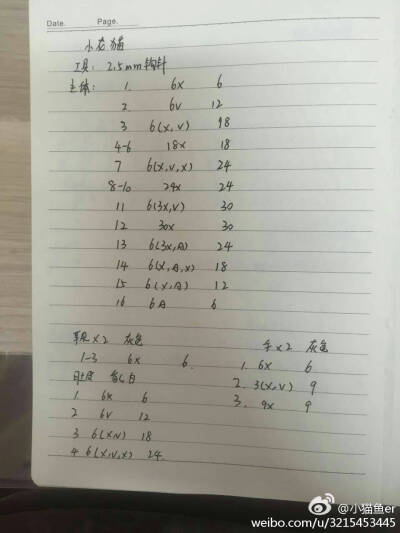 Date.        Page.
小龙猫
工具: 2.5mm 钩针
主体: 1. 6x 6
2 6v 12
3 6(x,v) 98
4-6 18x 18
7 6(x,v,x) 24
8-10 24x 24
11 6(3x,v) 30
12 30x 30
13 6(3x,A) 24
14 6(x,A,x) 18
15 6(x,A) 12
16 6A 6
耳朵x2 灰色
1-3 6x 6.
肚皮 白
1 6x 6
2 6v 12
3 6(xv) 18
4 6(x,v,x) 24.
手x2 灰色
1. 6x 6
2. 3(x,v) 9
3. 9x 9
@小猫鱼er
weibo.com/u/3215453445